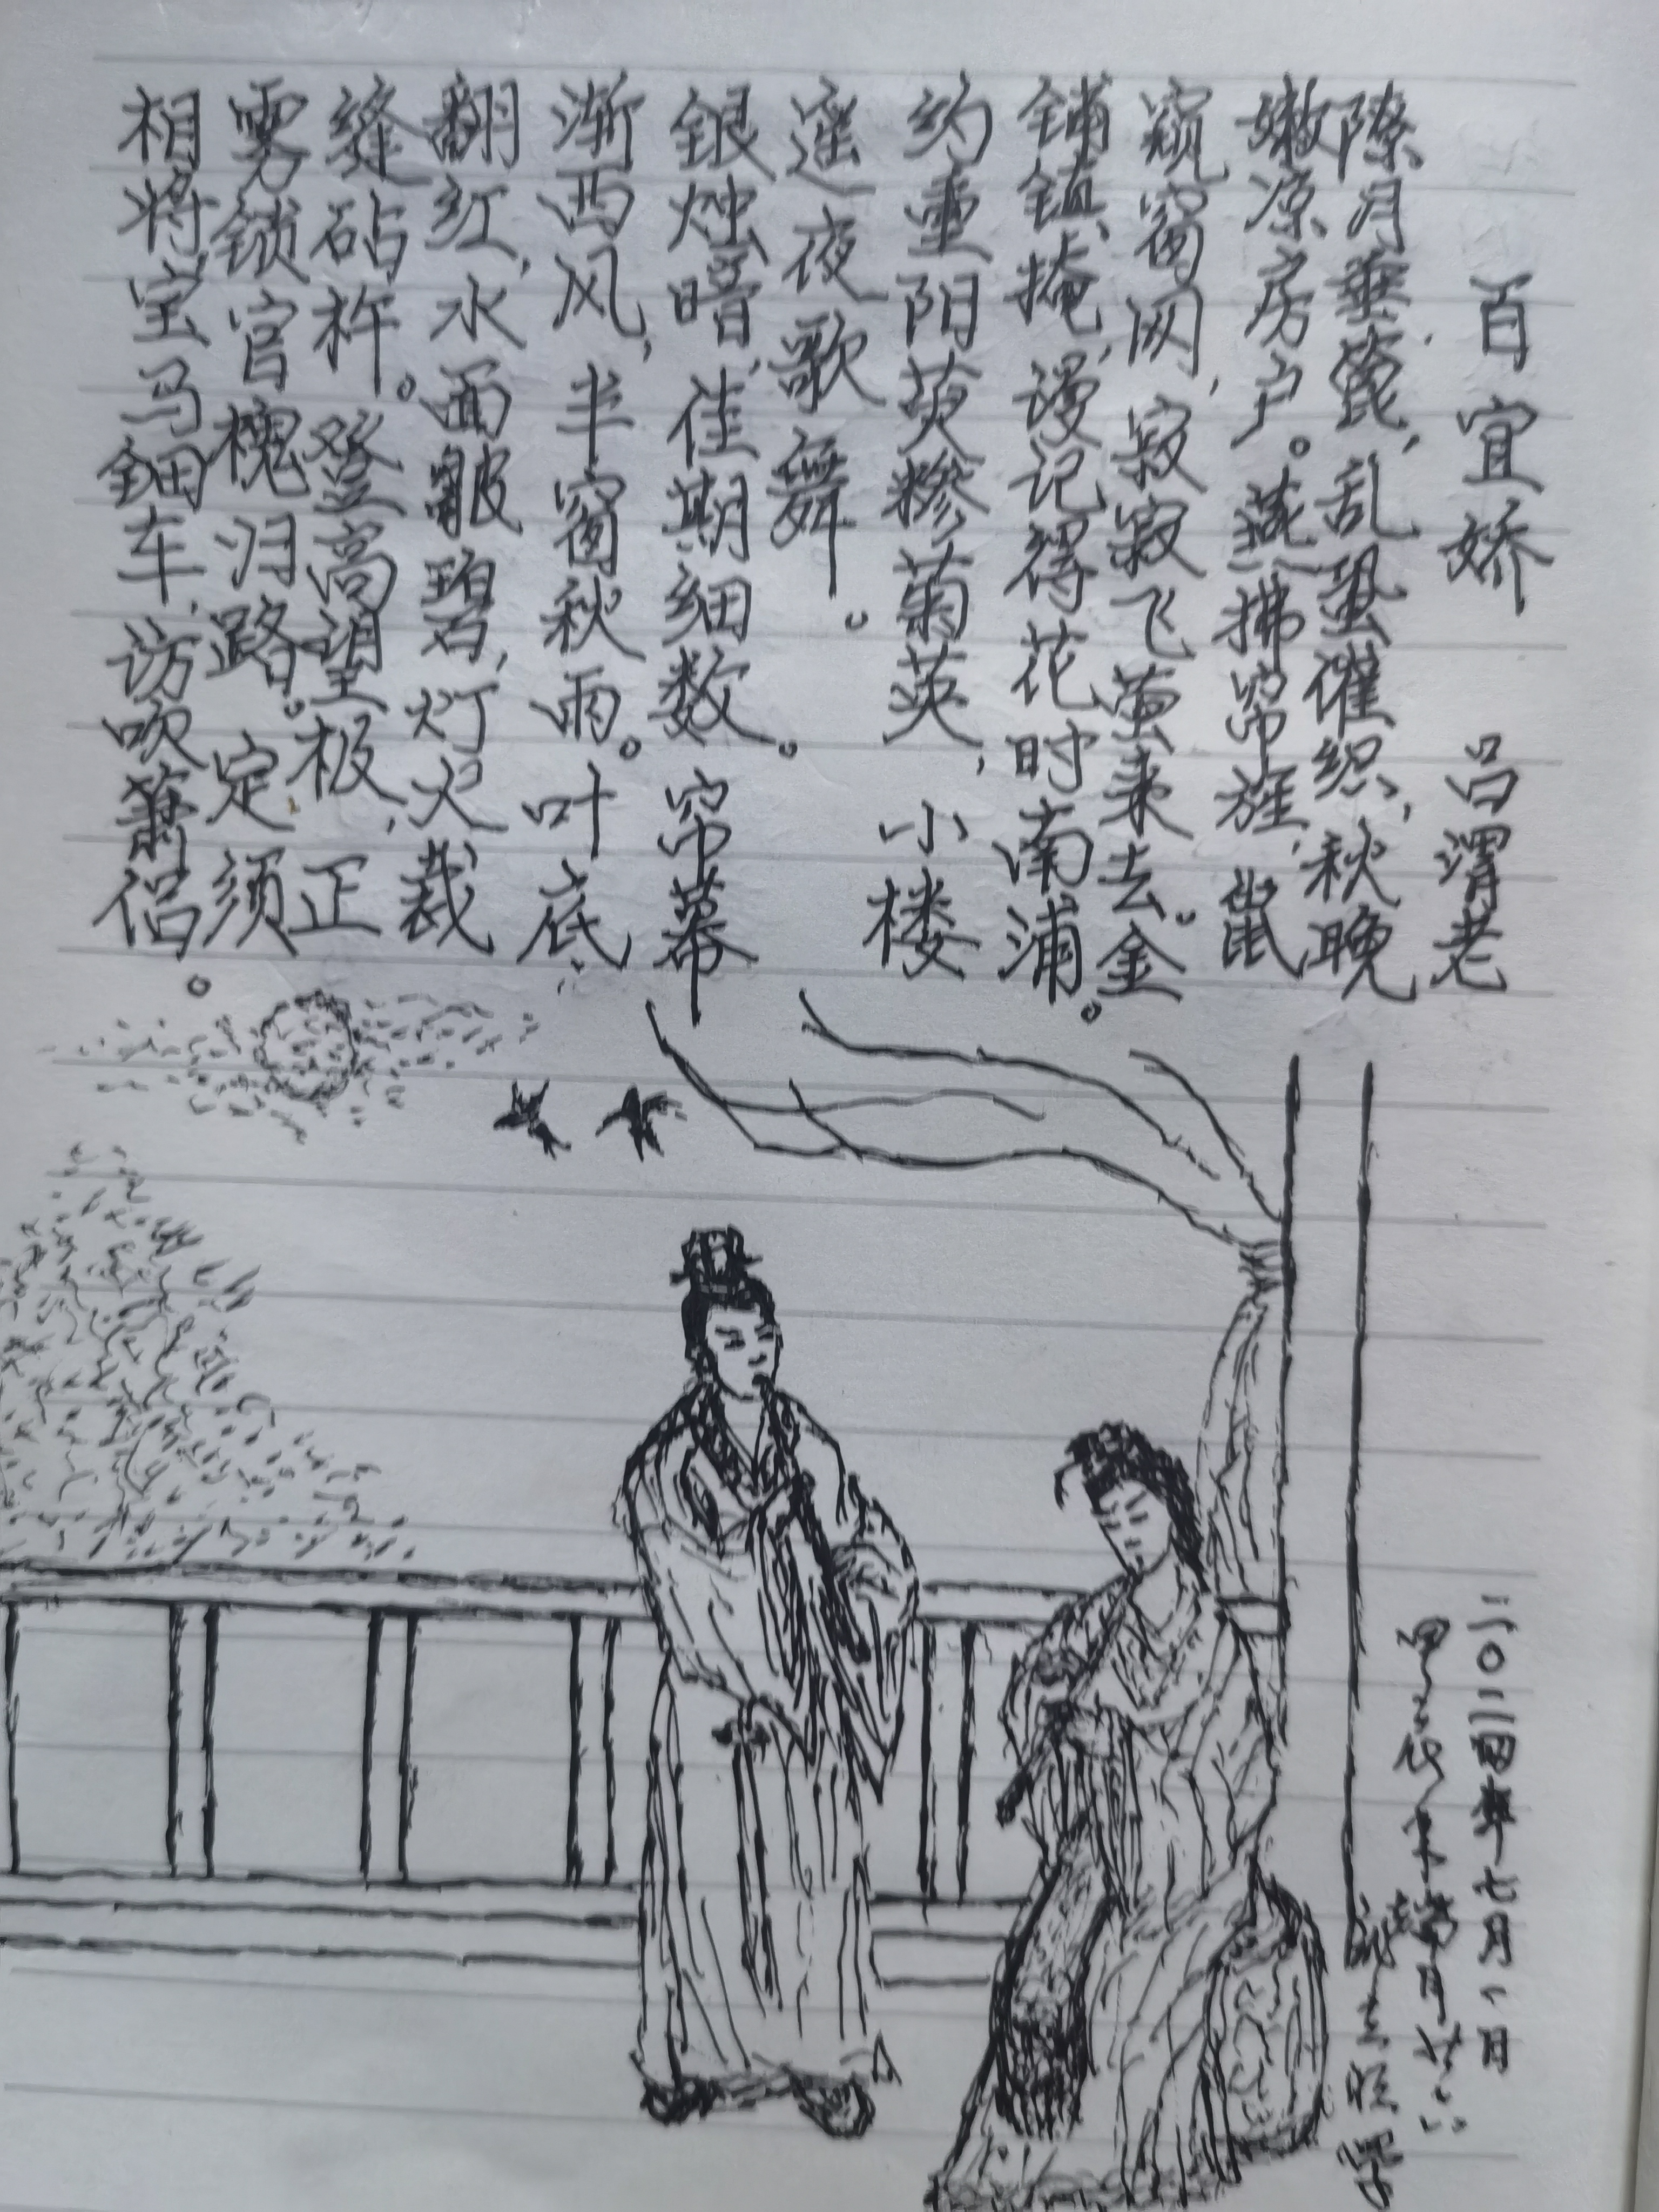 百宜娇 吕渭老
隙月垂篦，乱蛩催织，秋晚
嫩凉房户。燕拂帘旌，鼠
窥窗网，寂寂飞萤来去。金
铺镇掩，谩记得花时南浦。
约重阳萸糁菊英，小楼
遥夜歌舞。
银烛暗，佳期细数。帘幕
渐西风，半窗秋雨。叶底
翻红，水面皱碧，灯火裁
缝砧杵。登高望极，正
雾锁官槐归路。定须
相将宝马钿车，访吹箫侣。
二〇二四年七月一日
月廿六